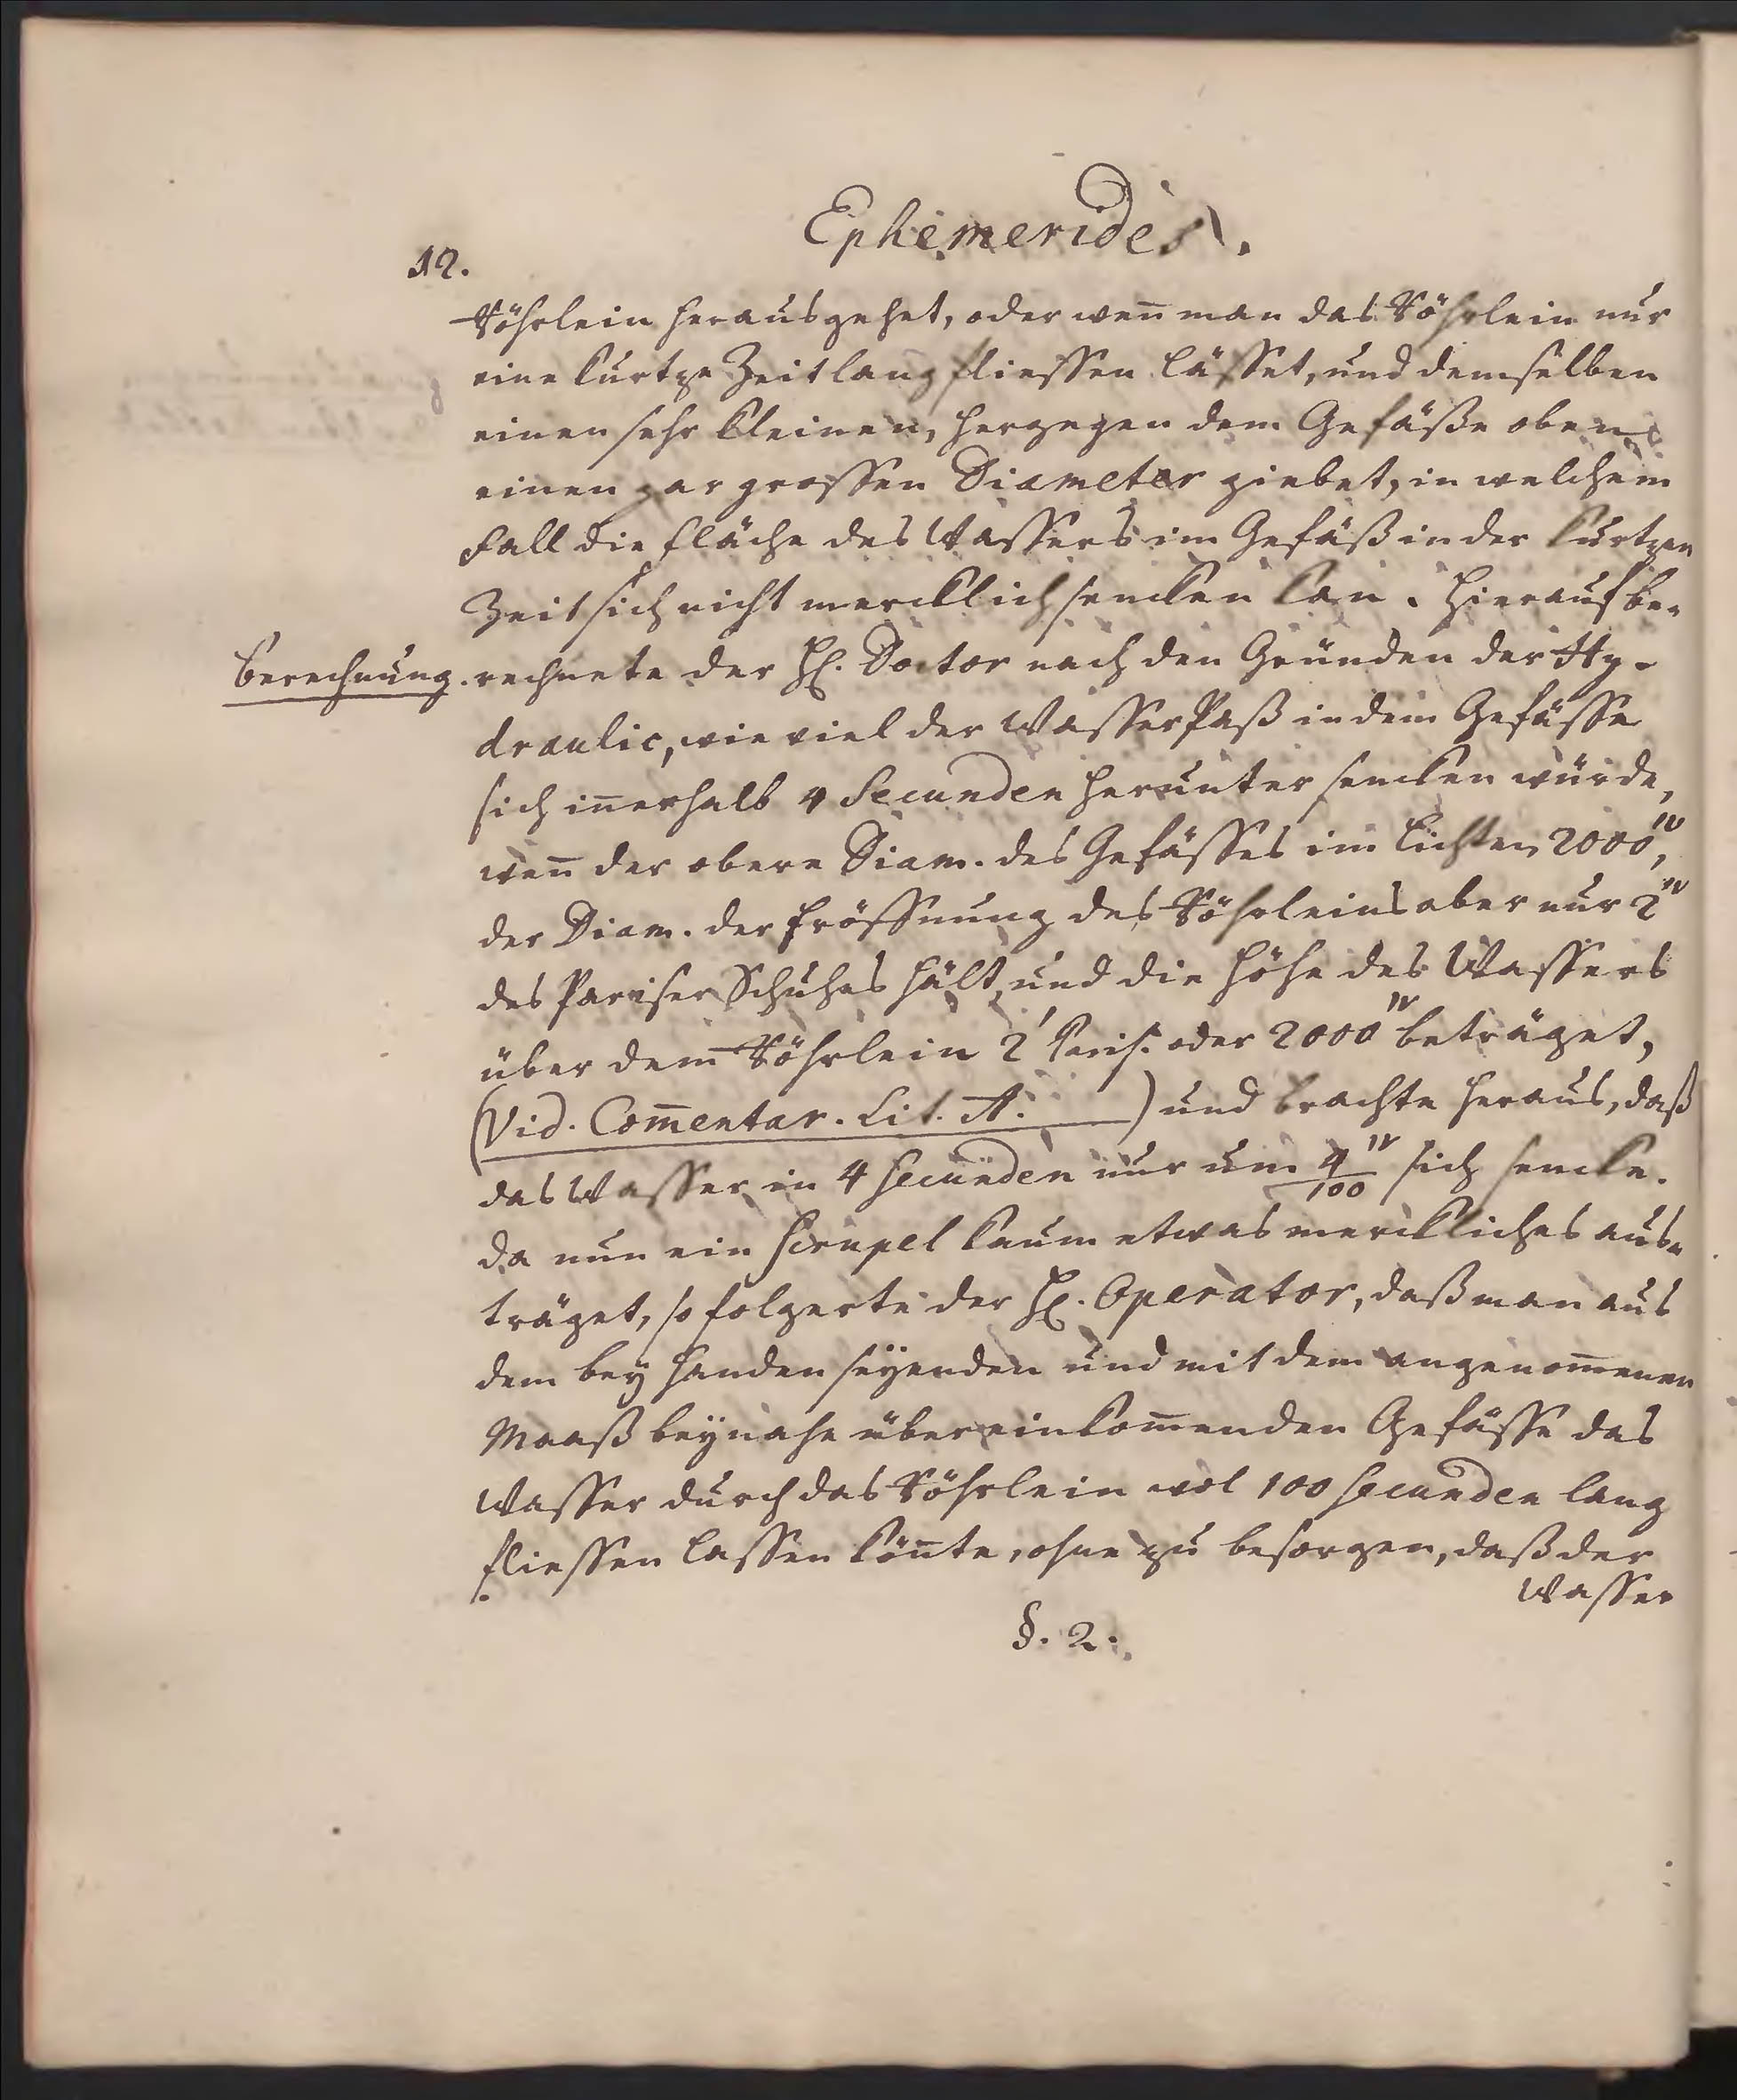 Ephemerides.
12.
Röhrlein herausgehet, oder weñ man das Röhrlein nur
eine kurtze Zeitlang fliessen lässet, und demselben
einen sehr kleinen, hergegen dem Gefäße oben
einen gar grossen Diameter giebet, in welchem
Fall die Fläche des Wassers im Gefäß in der kurtzen
Zeit sich nicht mercklich sencken kan. Hierauf be-
Berechnung. rechnete der H. Doctor nach den Gründen der Hy-
draulic, wie viel der Wasser Paß in dem Gefässe
sich iñerhalb 4 Secunden herunter sencken würde,
weñ der obere Diam. des Gefässes im Lichten 2000‴,
der Diam. der Eröffnung des Röhrleins aber nur 2‴
des Pariser Schuhes hält, und die Höhe des Wassers
über dem Röhrlein 2′ Paris. oder 2000‴ beträget,
(Vid. Com̃entar. Lit. A. ) und brachte heraus, daß
das Wasser in 4 Secunden nur um 4/100‴ sich sencke.
Da nun ein Scrupel kaum etwas merckliches aus-
träget, so folgerte der H. Operator, daß man aus
dem bey Handen seyenden und mit dem angenom̃enen
Maaß beynahe übereinkom̃enden Gefässe das
Wasser durch das Röhrlein wol 100 Secunden lang
fliessen lassen köñte, ohne zu besorgen, daß der
Wasser
§. 2.